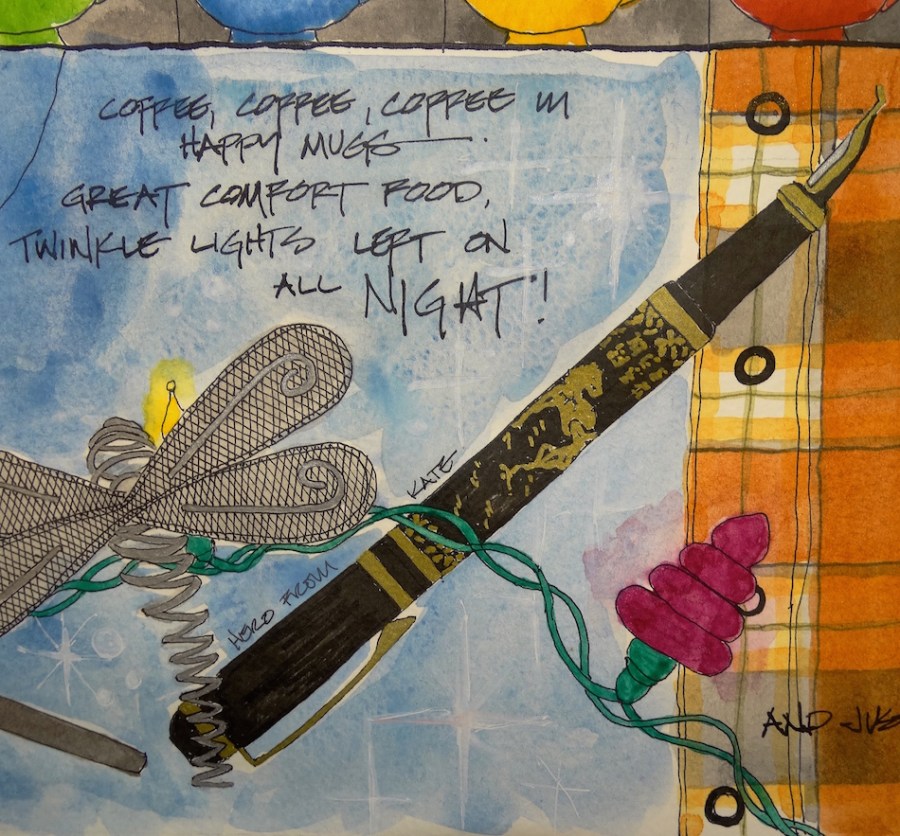 COFFEE, COFFEE, COFFEE IN
HAPPY MUGS—.
GREAT COMFORT FOOD,
TWINKLE LIGHTS LEFT ON
ALL NIGHT!
KATE
HERO FROM
AND JUS